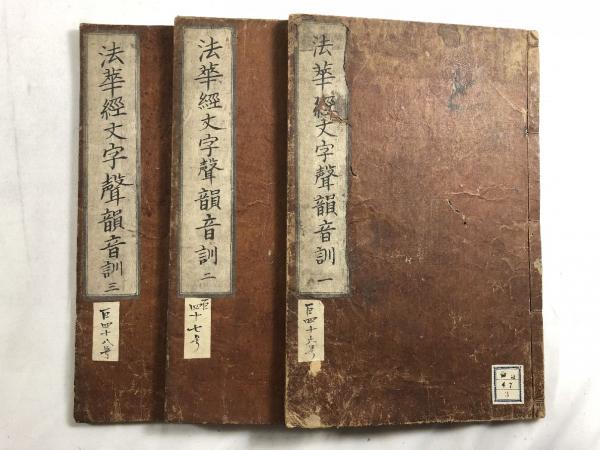 法華經文字聲韻音訓 一
巨四十六号
47
3
法華經文字聲韻音訓 二
四十七号
法華經文字聲韻音訓 三
巨四十八号